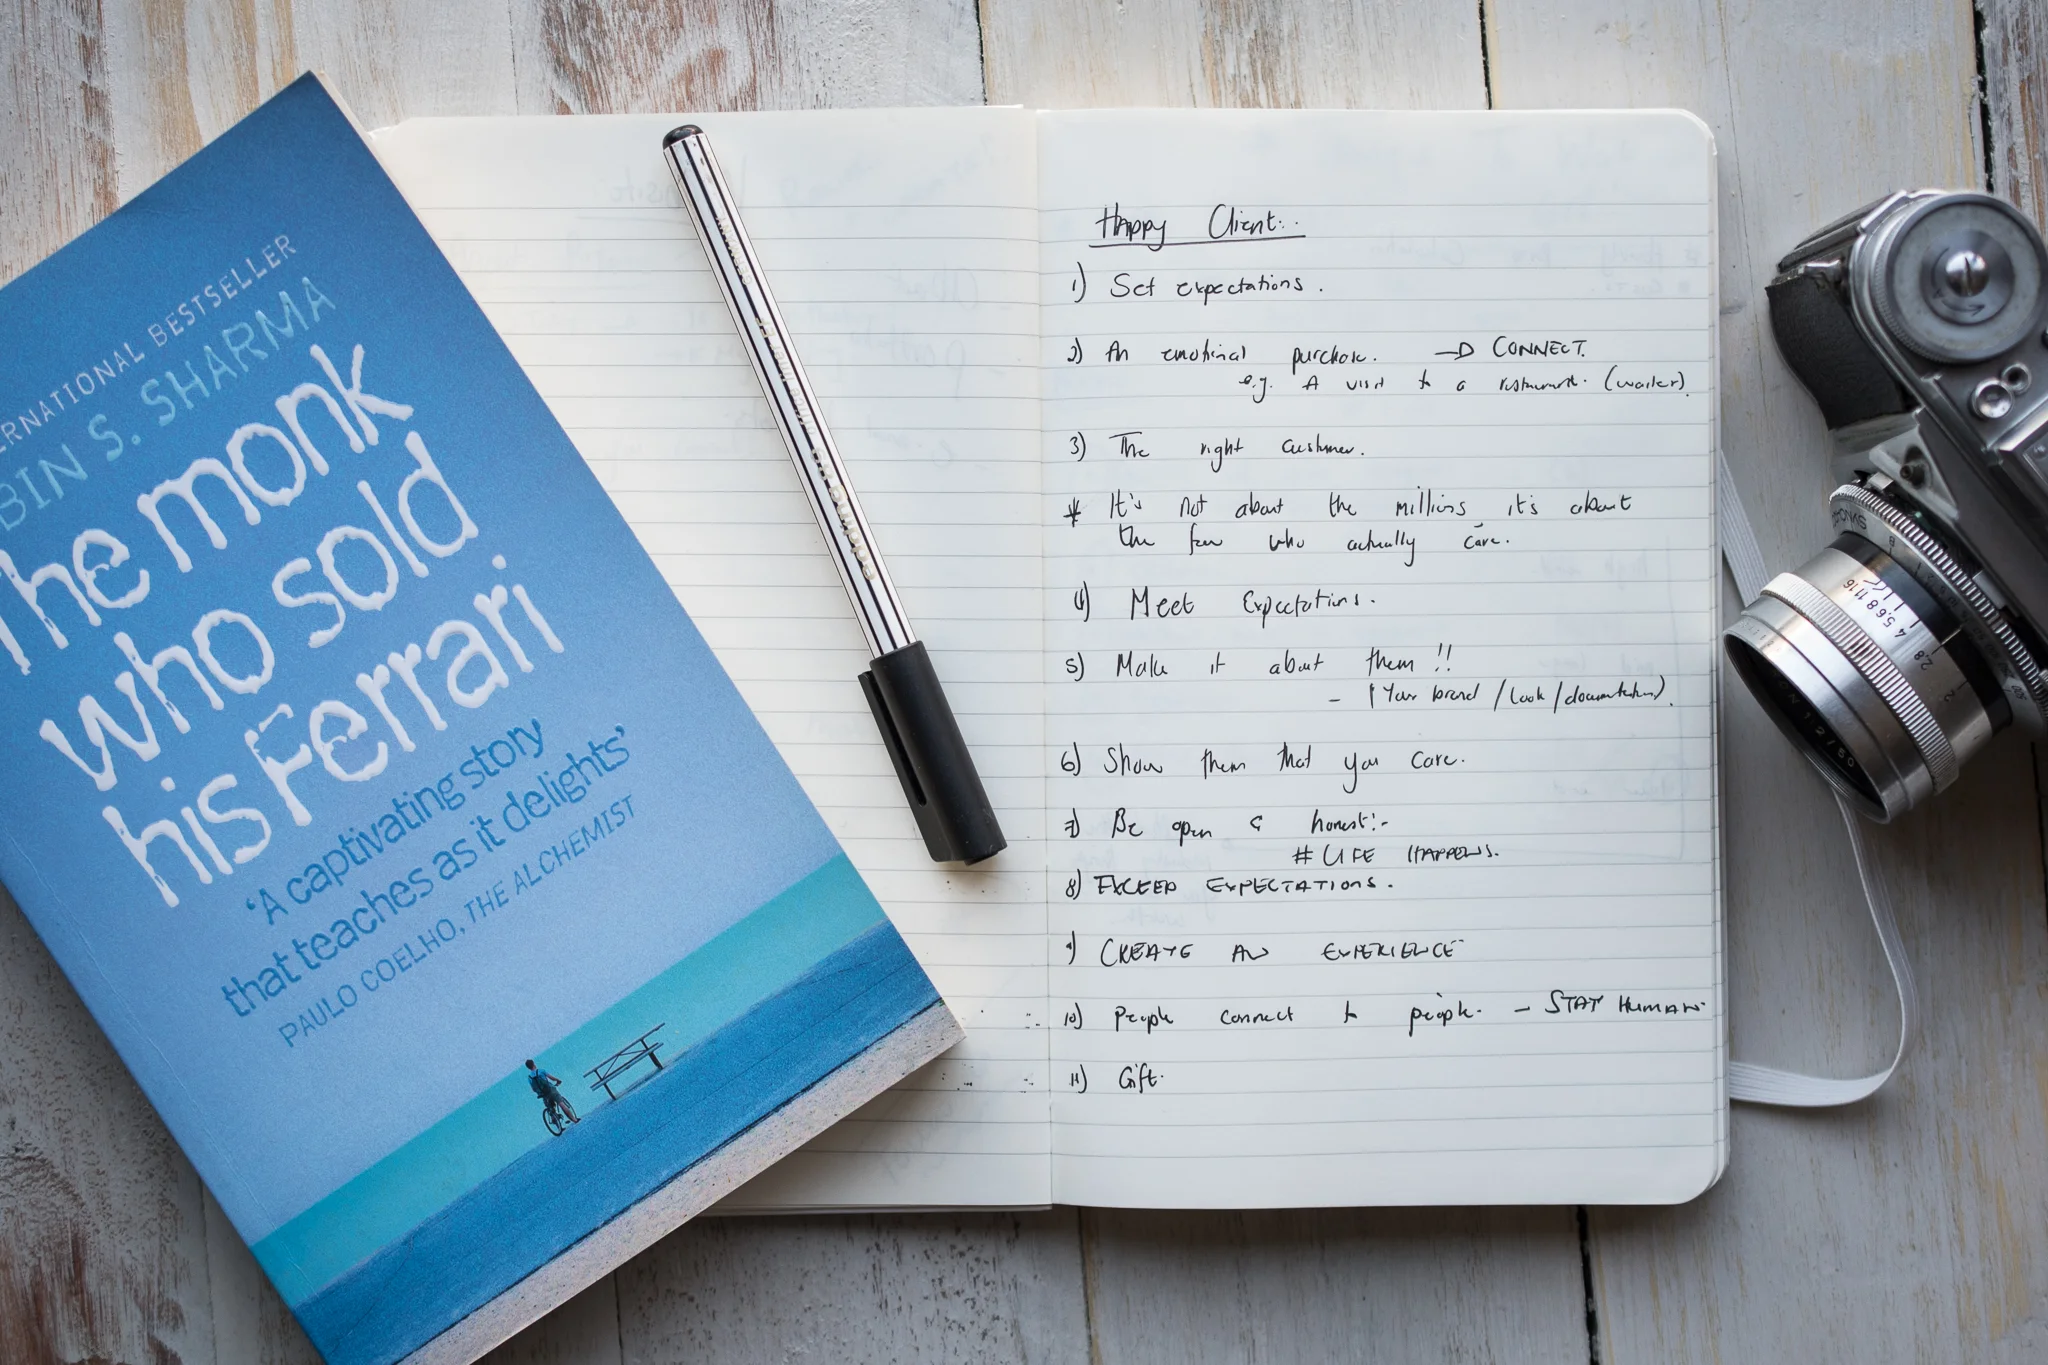 INTERNATIONAL BESTSELLER
ROBIN S. SHARMA
The monk
who sold
his Ferrari
'A captivating story
that teaches as it delights'
PAULO COELHO, THE ALCHEMIST
Happy Client:.
1) Set expectations.
2) An emotional purchase. → CONNECT.
e.g. A visit to a restaurant. (waiter).
3) The right customer.
* It's not about the millions, it's about
the few who actually care.
4) Meet Expectations.
5) Make it about them!!
- (Your brand / Look / documentation).
6) Show them that you care.
7) Be open & honest!-
# LIFE HAPPENS.
8) EXCEED EXPECTATIONS.
9) CREATE AN EXPERIENCE
10) People connect to people. - STAY HUMAN.
11) Gift.
2.8 4 5.6 8 11 16